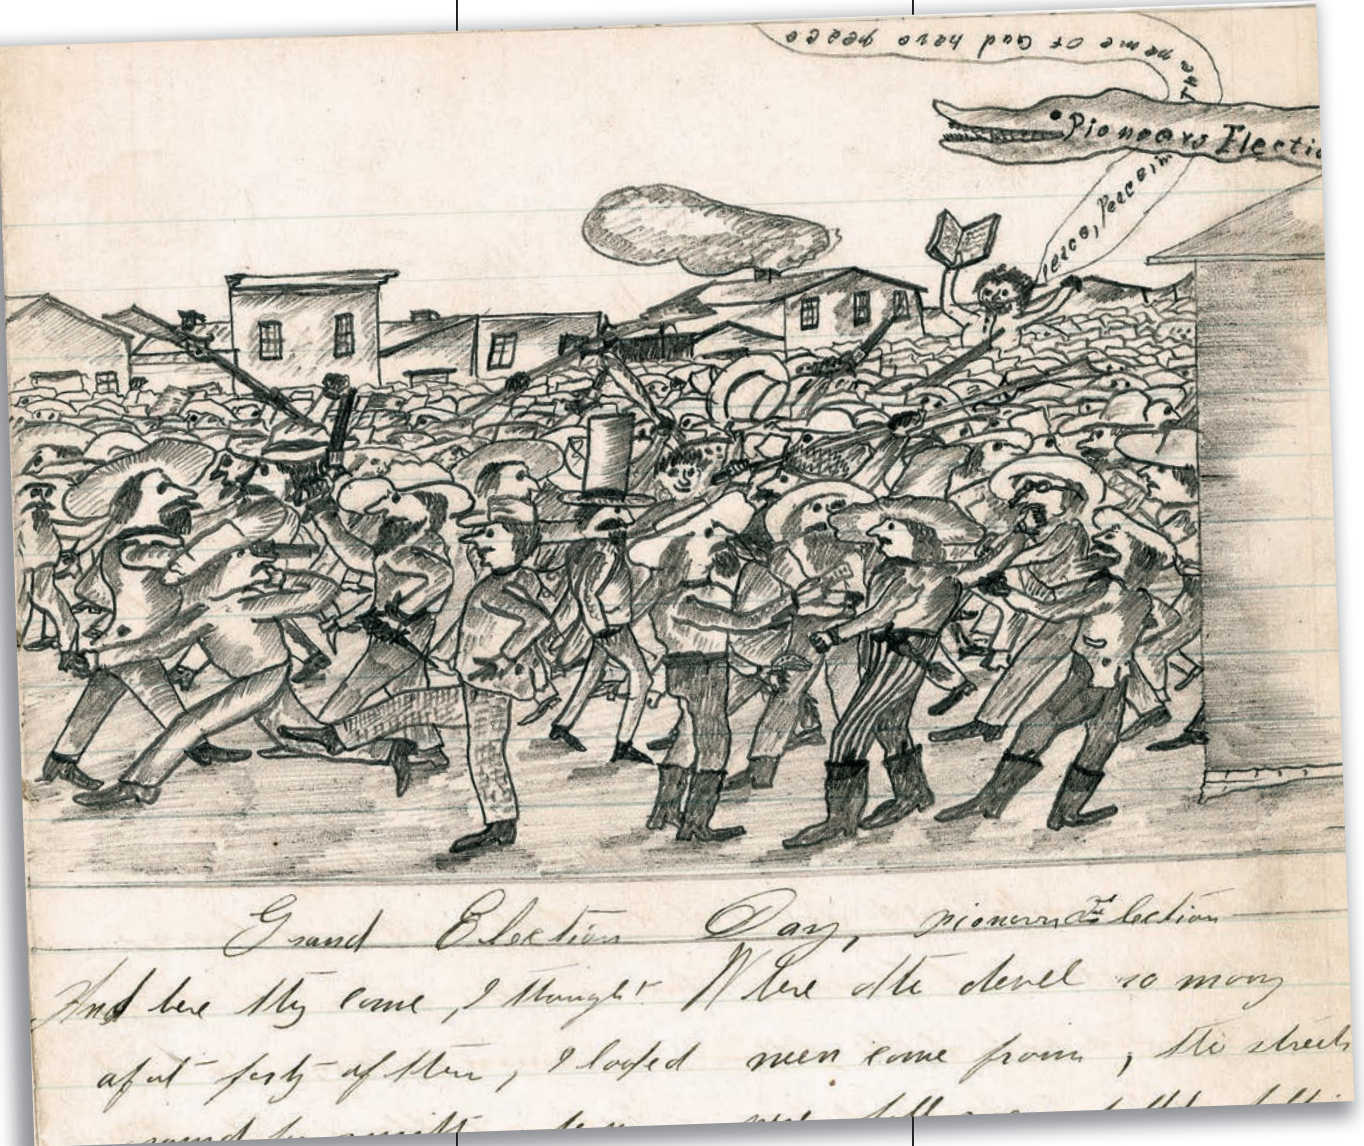 the name of God have peace
Pioneers Electi
Peace, Peace in
Grand Election Day, pioneers Election
And here they come, I thought Where the devel so many
afut forty of them, I loofed men come from, the streets